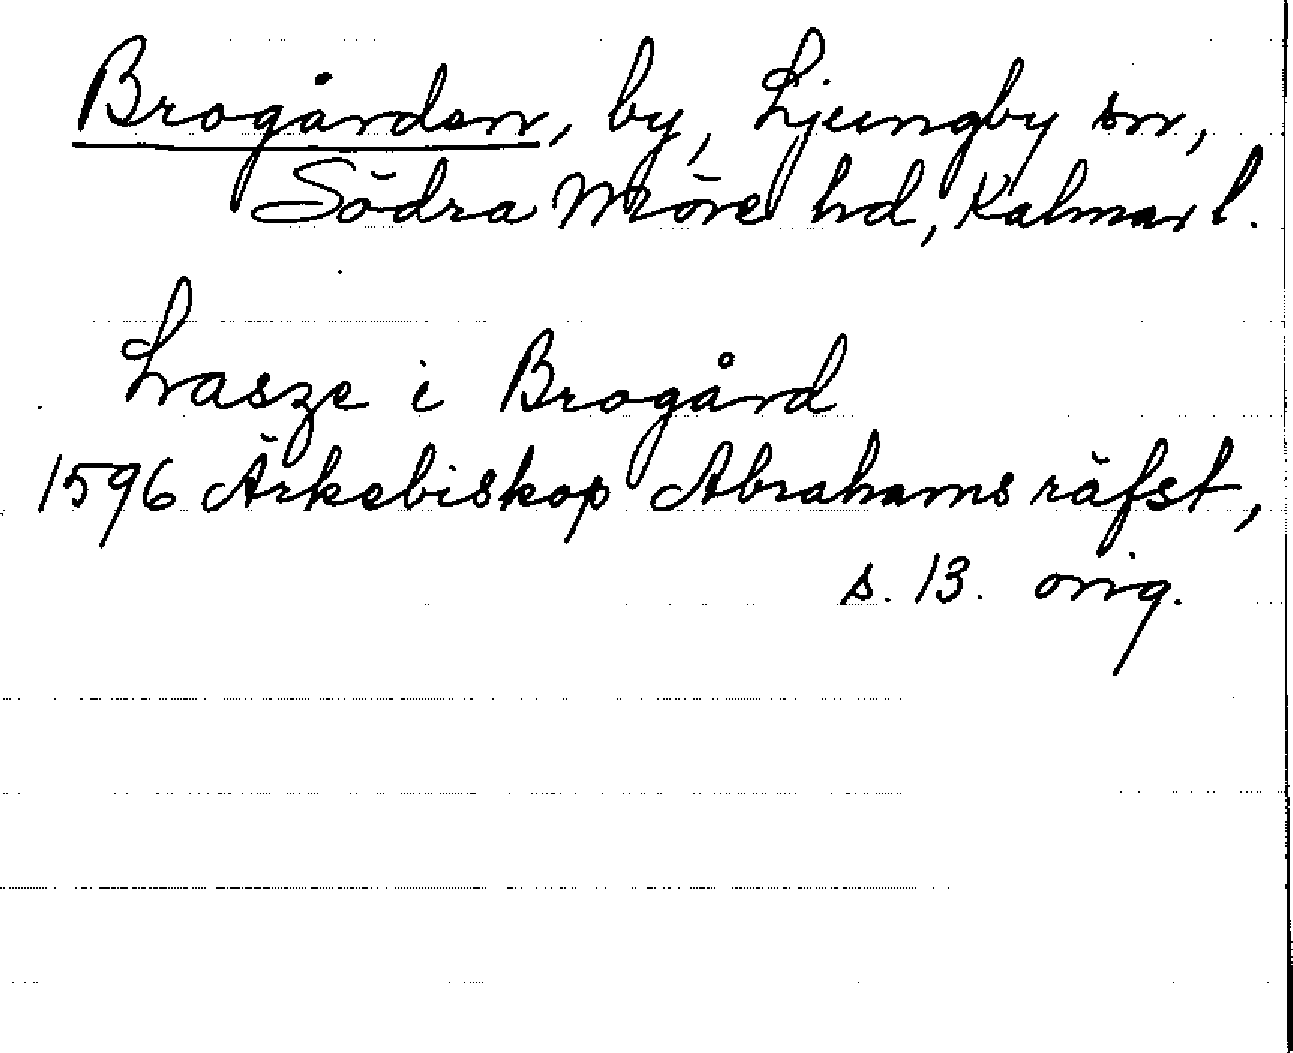 Brogården, by, Ljungby sn,
Södra Möre hd, Kalmar l.
Lasze i Brogård
1596 Ärkebiskop Abrahams räfst,
s. 13. orig.